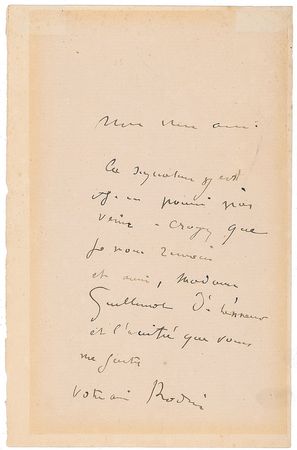 Mon cher ami.
La signature
pourrai pas
venir - croyez que
je vous remercie
et aussi, Madame
Guillemot de l'honneur
et l'amitié que vous
me faites
votre ami Rodin